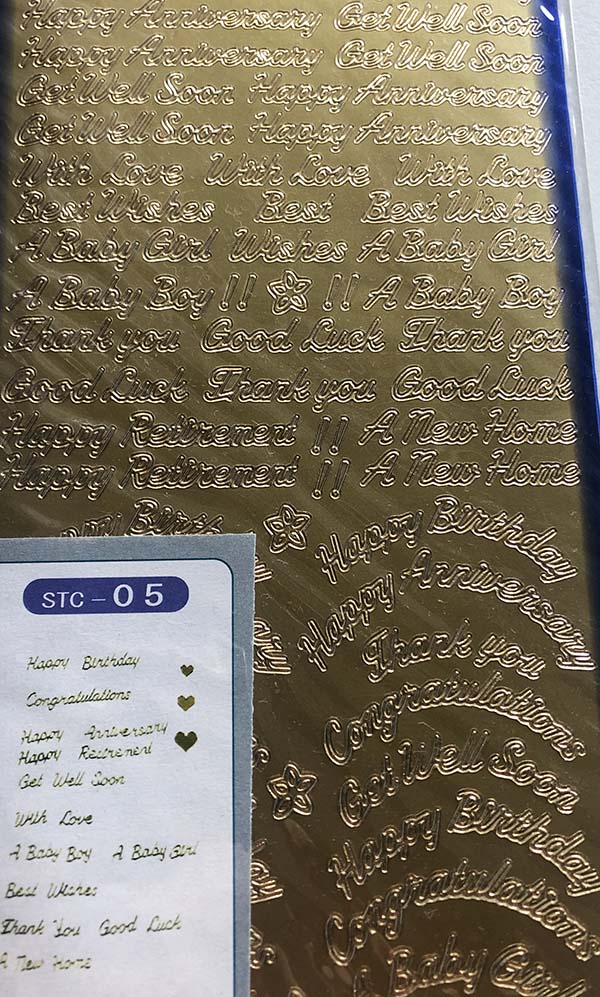 Happy Anniversary Get Well Soon
Happy Anniversary Get Well Soon
Get Well Soon Happy Anniversary
Get Well Soon Happy Anniversary
With Love With Love With Love
Best Wishes Best Best Wishes
A Baby Girl Wishes A Baby Girl
A Baby Boy !! !! A Baby Boy
Thank you Good Luck Thank you
Good Luck Thank you Good Luck
Happy Retirement !! A New Home
Happy Retirement !! A New Home
Happy Birthday
Happy Anniversary
Thank you
Congratulations
Get Well Soon
Happy Birthday
Congratulations
A Baby Girl
STC - 05
Happy Birthday
Congratulations
Happy Anniversary
Happy Retirement
Get Well Soon
With Love
A Baby Boy A Baby Girl
Best Wishes
Thank You Good Luck
A New Home